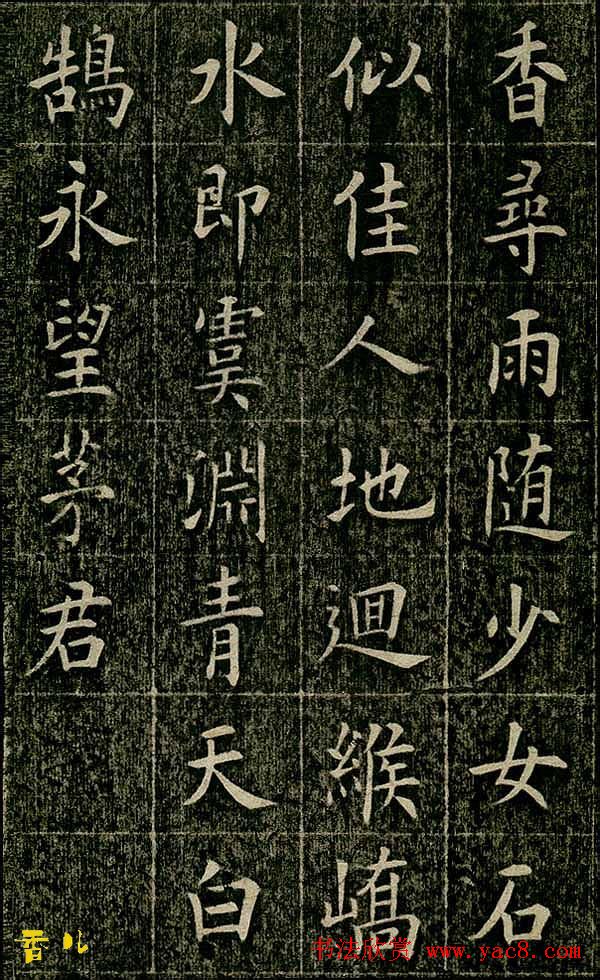 香尋雨随少女石
似佳人地迴緱嶠
水即雲淵青天白
鵠永望茅君
书法欣赏 www.yac8.com